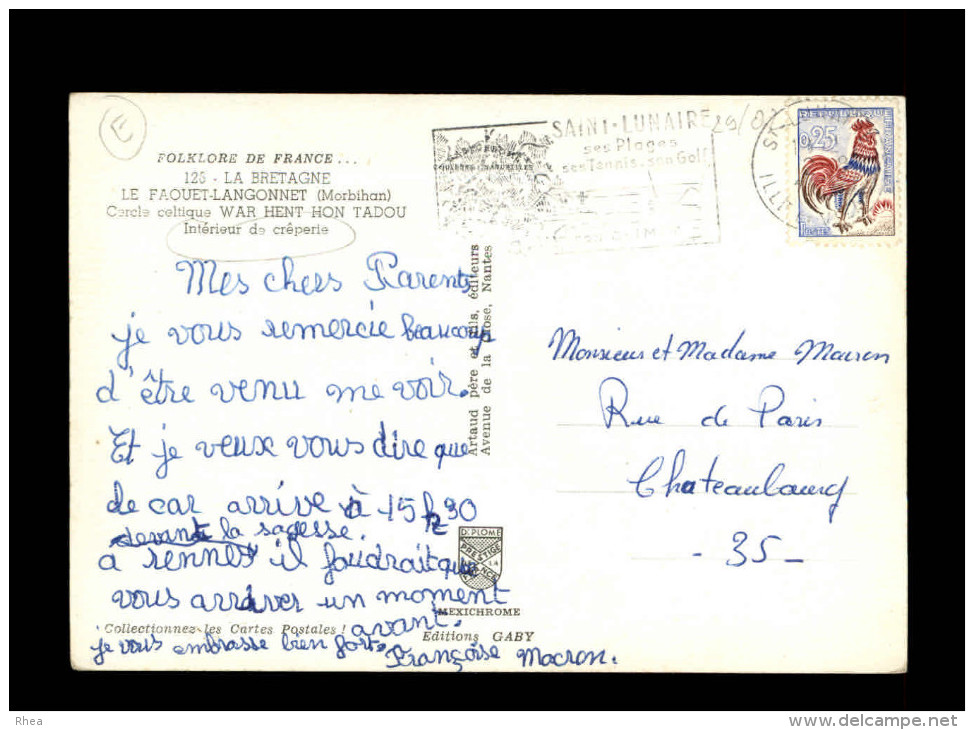 E
FOLKLORE DE FRANCE...
126 - LA BRETAGNE
LE FAOUET-LANGONNET (Morbihan)
Cercle celtique WAR HENT HON TADOU
Intérieur de crêperie
SAINT-LUNAIRE
ses Plages
ses Tennis, son Golf
REPUBLIQUE FRANÇAISE
0,25
POSTES
Mes chers Parents
je vous remercie beaucoup
d'être venu me voir.
Et je veux vous dire que
de car arrive à 15 h 30
devant la sagesse.
a rennes il faudrait que
vous arriver un moment
avant.
je vous embrasse bien fort.
Françoise Macron.
Artaud père et fils, éditeurs
Avenue de la Close, Nantes
DIPLOME
PRESTIGE
LA
FRANCE
MEXICHROME
Collectionnez les Cartes Postales !
Editions GABY
Monsieur et Madame Macron
Rue de Paris
Chateaubourg
- 35 -
Rhea
www.delcampe.net